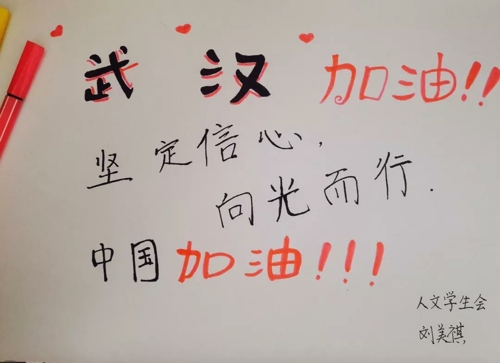 武汉 加油!!
坚定信心,
向光而行.
中国加油!!!
人文学生会
刘美祺